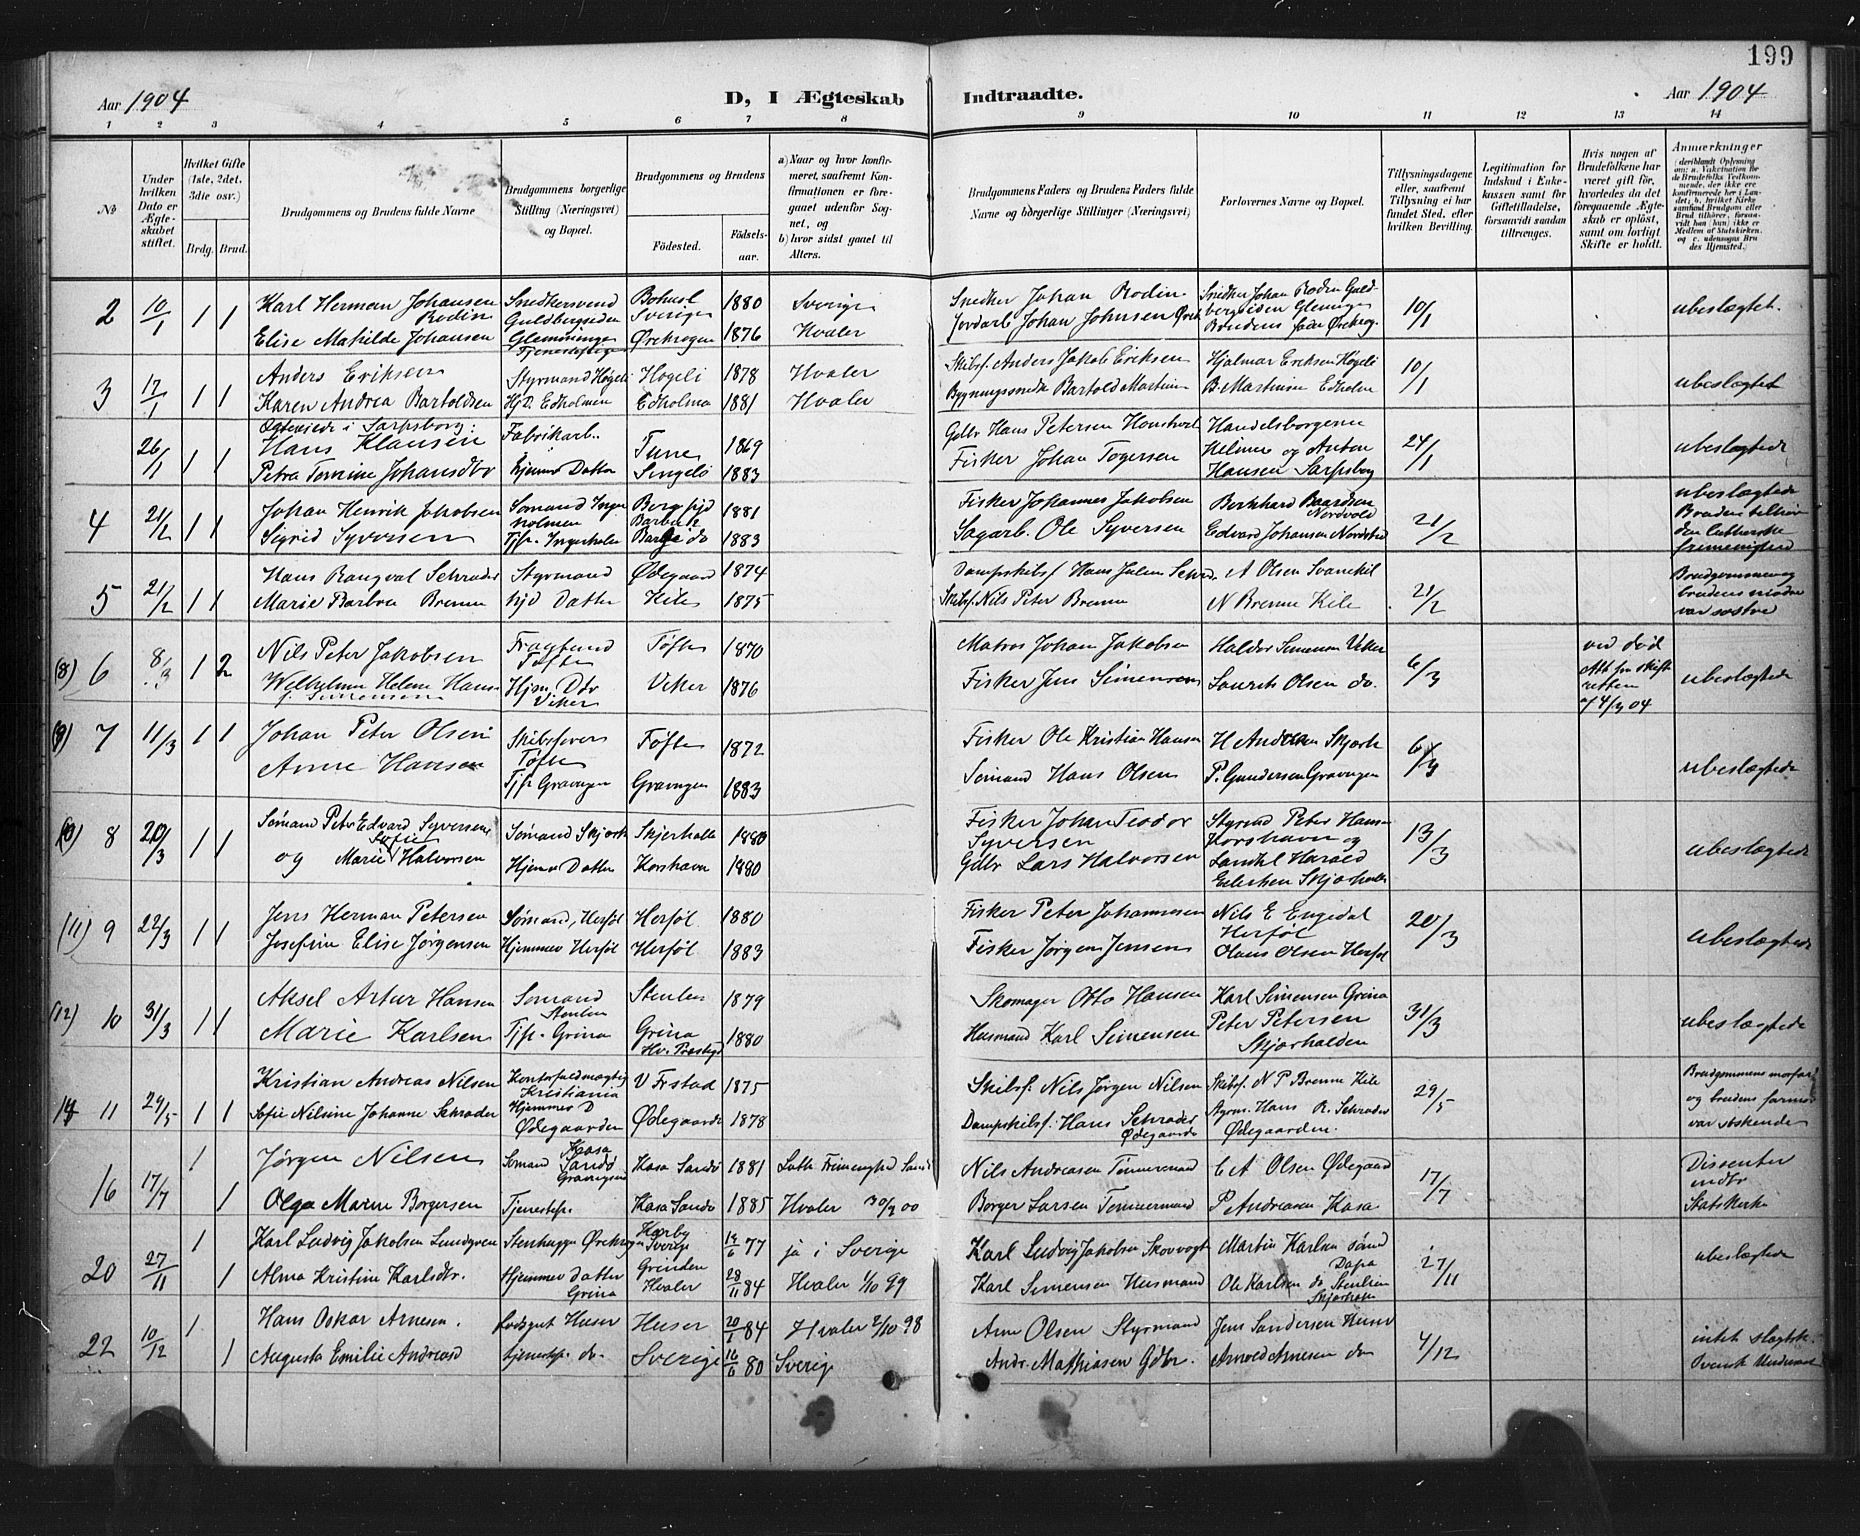 199
Aar 1904
D, I Ægteskab Indtraadte.
Aar 1904
1 2 3 4 5 6 7 8 9 10 11 12 13 14
No
Under hvilken Dato er Ægteskabet stiftet.
Hvilket Gifte (1ste, 2det, 3die osv.)
Brdg. Brud.
Brudgommens og Brudens fulde Navne
Brudgommens borgerlige Stilling (Næringsvei) og Bopæl.
Brudgommens og Brudens
Födested.
Födselsaar.
a) Naar og hvor konfirmeret, saafremt Konfirmationen er foregaaet udenför Sognet, og
b) hvor sidst gaaet til Alters.
Brudgommens Faders og Brudens Faders fulde Navne og bórgerlige Stillinger (Næringsvei)
Forlovernes Navne og Bopæl.
Tillysningsdagene eller, saafremt Tillysning ei har fundet Sted, efter hvilken Bevilling.
Legitimation for Indskud i Enkekassen samt for Giftetilladelse, forsaavidt saadan tiltrænges.
Hvis nogen af Brudefolkene har været gift för, hvorledes da det foregaaende Ægteskab er oplöst, samt om lovligt Skifte er holdt.
Anmærkninger
2 10/1 1 1 Karl Herman Johansen Rodin Snedkersvend Guldbergsiden Glemminge Bohusl Sverige 1880 Sverige Snedker Johan Rodin Snedker Johan Rodin Guldbergsiden Glemminge 10/1 ubeslægtet.
Elise Mathilde Johansen Tjenestepige Ørekrogen 1876 Hvaler Jordarb Johan Johnsen Brudens fader Ørekrog.
3 17/1 1 1 Anders Eriksen Styrmand Høgeli Høgeli 1878 Hvaler Skibsf. Anders Jakob Eriksen Hjalmar Eriksen Høgeli 10/1 ubeslægtet
Karen Andrea Bartoldsen Hj D. Edholmen Edholmen 1881 Hvaler Bartold Martinsen B. Martinsen Edholm
Ægteviede i Sarpsborg:
26/1 1 1 Hans Klausen Fabrikarb. Tune 1869 Gdbr Hans Petersen Handelsborgerne 24/1 ubeslægtede
Petra Tomine Johansdtr Hjemmev Datter Singelö 1883 Fisker Johan Togersen Helmer og Anton Hansen Sarpsborg
4 21/2 1 1 Johan Henrik Jakobsen Sømand 1881 Fisker Johannes Jakobsen Bernhard Baardsen Nordvold 21/2 ubeslægtede
Sigrid Syversen 1883 Sagarb. Ole Syversen Edvard Johansen Bruden tilhører den lutherske frimenighed
5 21/2 1 1 Hans Rangval Schrader Styrmand Ødegaard 1874 Dampskibsf Hans Julius Schrader A Olsen Svanekil 21/2 Brudgommens og brudens mødre var søstre
Marie Barbra Brenne Hjd Datter Kile 1875 Skibsf. Nils Peter Brenne N Brenne Kile
(8) 6 8/3 1 2 Nils Peter Jakobsen Tøften Tøften 1870 Matros Johan Jakobsen Haldor Simensen Viker 6/3 ved død Att fra skifteretten af 4/3 04 ubeslægtede
Wilhelmine Helene Hansen f. Simensen Hjem. Dtr Viker Viker 1876 Fisker Jens Simensen Laurits Olsen do.
(9) 7 11/3 1 1 Johan Peter Olsen Tøften Tøften 1872 Fisker Ole Kristian Hansen H Andersen Skjærh 6/3 ubeslægtede
Anne Hansen Tjp Gravngen Gravngen 1883 Sømand Hans Olsen P. Gundersen Gravngen
(10) 8 20/3 1 1 Sømand Peter Edvard Syversen Sømand Skjærh Skjerhalle 1880 Fisker Johan Teodor Syversen Styrmd Peter Hansen Korshavn og 13/3 ubeslægtede
og Marie Sofie Halvorsen Hjemmev Datter Korshavn 1880 Gdbr Lars Halvorsen Landhl Harald Skjærhalle
(11) 9 22/3 1 1 Jens Herman Petersen Sømand, Herföl Herföl 1880 Fisker Peter Johannesen Nils E Engedal Herföl 20/3 ubeslægtede
Josefine Elise Jørgensen Hjemmev Herföl Herföl 1883 Fisker Jørgen Jensen Hans Olsen Herföl
(12) 10 31/3 1 1 Aksel Artur Hansen Sømand Stenlien Stenlien 1879 Skomager Otto Hansen Karl Simensen Grina 31/3 ubeslægtede
Marie Karlsen Tjp. Grina Grina 1880 Husmand Karl Simensen Peter Petersen Skjærhalden
14 11 29/5 1 1 Kristian Andreas Nilsen Kontorfuldmægtig Kristiania 1875 Skibsf. Nils Jørgen Nilsen Skibsf. N P Brenne Kile 29/5 Brudgommens morfar og brudens farmor var søskende
Sofie Nilsine Johanne Schrader Hjemmev D Ødegaarden Ødegaarde 1878 Dampskibsf. Hans Schrader Ødegaarde Styrm. Hans R. Schrader Ødegaarden.
16 17/7 1 Jørgen Nilsen Sømand Kasa Sandø Kasa Sandø 1881 Luth Frimenighed Nils Andreasen Tømmermand C A Olsen Ødegaard 17/7 Dissenter indtr Statskirke
1 Olga Marie Borgersen Tjenestep. Kasa Sandø 1885 Hvaler 30/9 00 Borger Larsen Tømmermand P Andreasen Kasa
20 27/11 1 Karl Ludvig Jakobsen Lundgren Stenhugger Ørekrogen Sverige 14/6 77 ja i Sverige Karl Ludvig Jakobsen Skovvogt Martin Karlsen 27/11 ubeslægtede
1 Alma Kristine Karlsdtr. Hjemmev Datter Grina Grinden Hvaler 28/11 84 Hvaler 1/10 99 Karl Simensen Husmand Ole Karlsen do Stenlien Skjærhalle
22 10/12 1 Hans Oskar Arnesen. Lodsgut Huser Huser 20/1 84 Hvaler 2/10 98 Arne Olsen Styrmand Jens Sandersen Huser 4/12 intet slægtsk.
1 Augusta Emilie Andreasd tjenestep. do. Sverige 16/6 80 Sverige Andr. Mathiasen Gdbr. Arnold Arnesen do Svensk